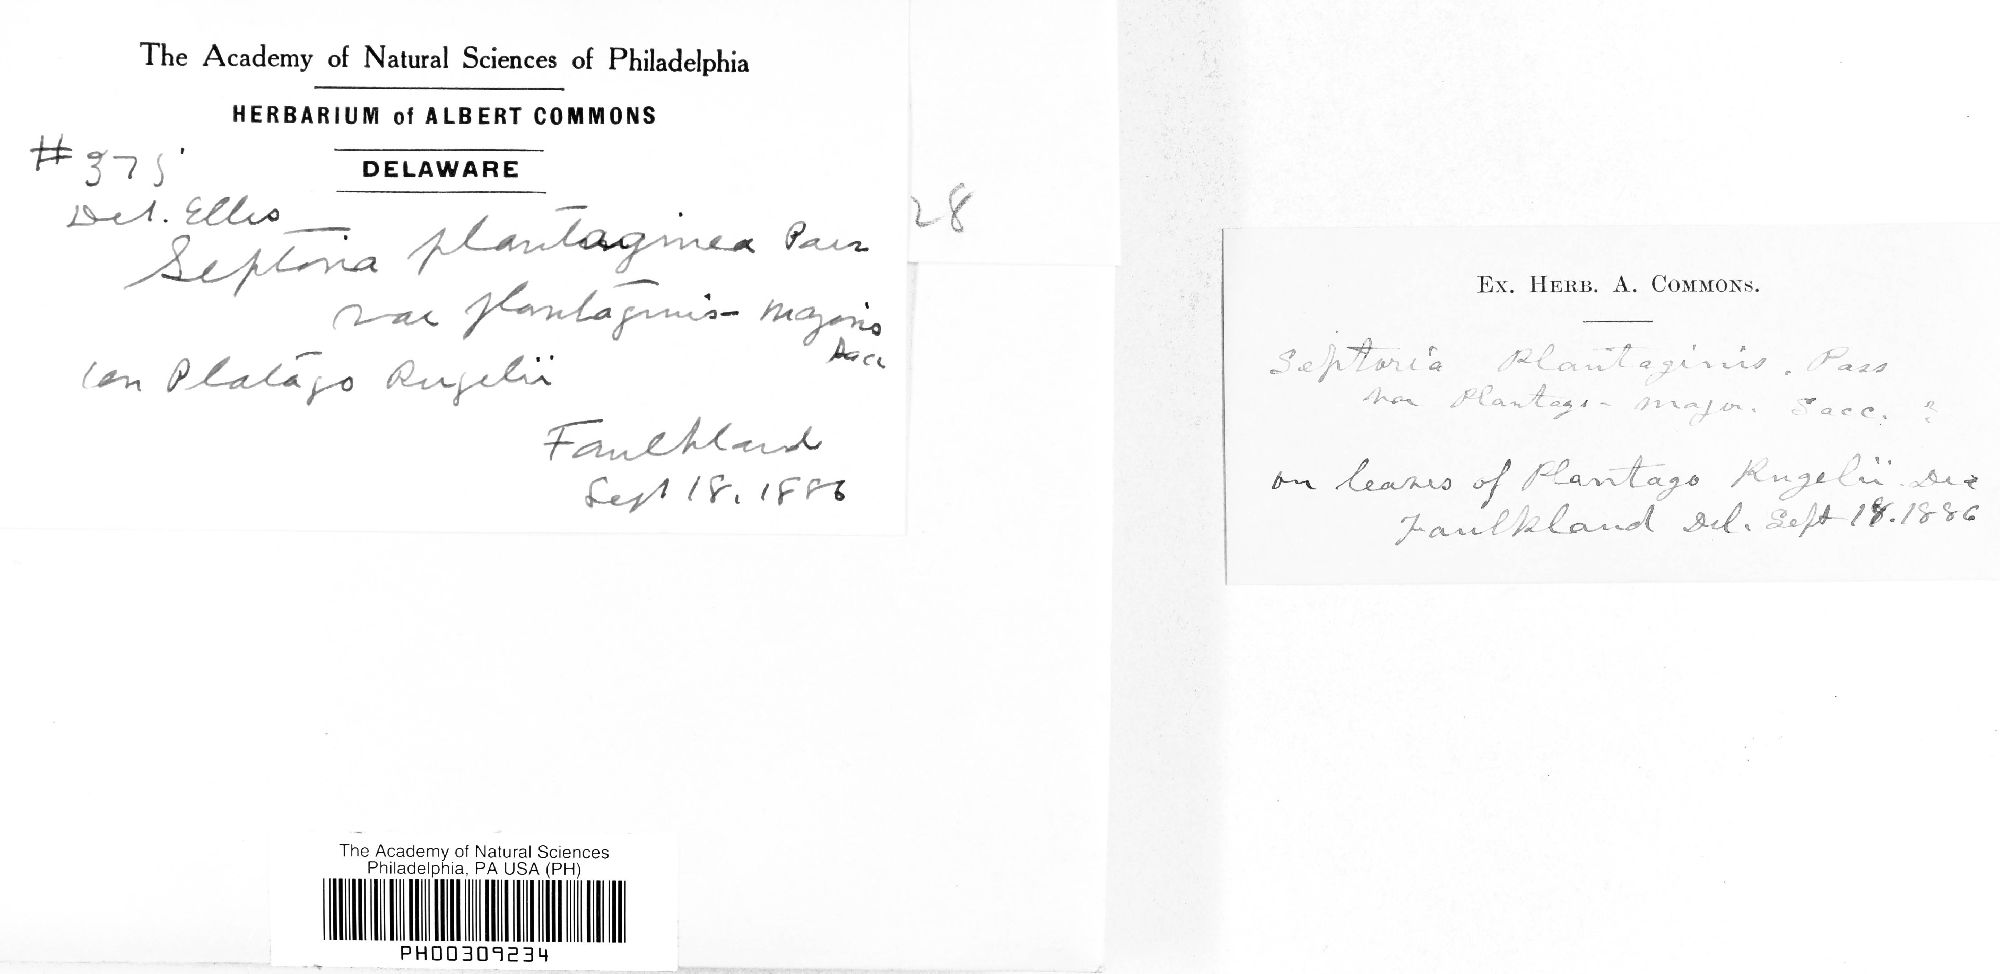 The Academy of Natural Sciences of Philadelphia
HERBARIUM of ALBERT COMMONS
DELAWARE
#375
Det. Ellis
Septoria plantaginea Pass
var plantaginis-majoris
Sacc
on Platago Rugelii
Faulkland
Sept 18. 1886
28
Ex. Herb. A. Commons.
Septoria Plantaginis. Pass
var Plantago-major. Sacc. ?
on leaves of Plantago Rugelii. Dec
Faulkland Del. Sept 18. 1886
The Academy of Natural Sciences
Philadelphia, PA USA (PH)
PH00309234